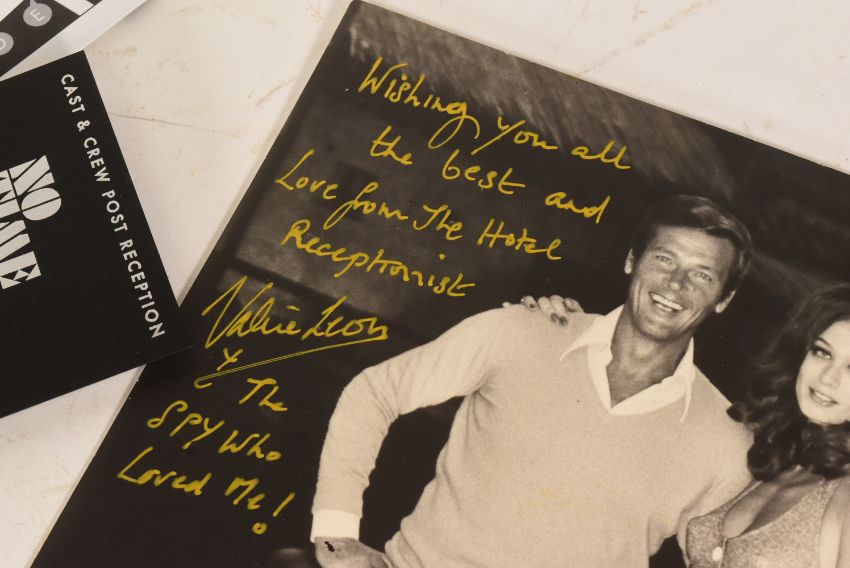 Wishing you all
the best and
Love from The Hotel
Receptionist
Valerie Leon
x The
SPY Who
Loved Me!
CAST & CREW POST RECEPTION
NO
TIME